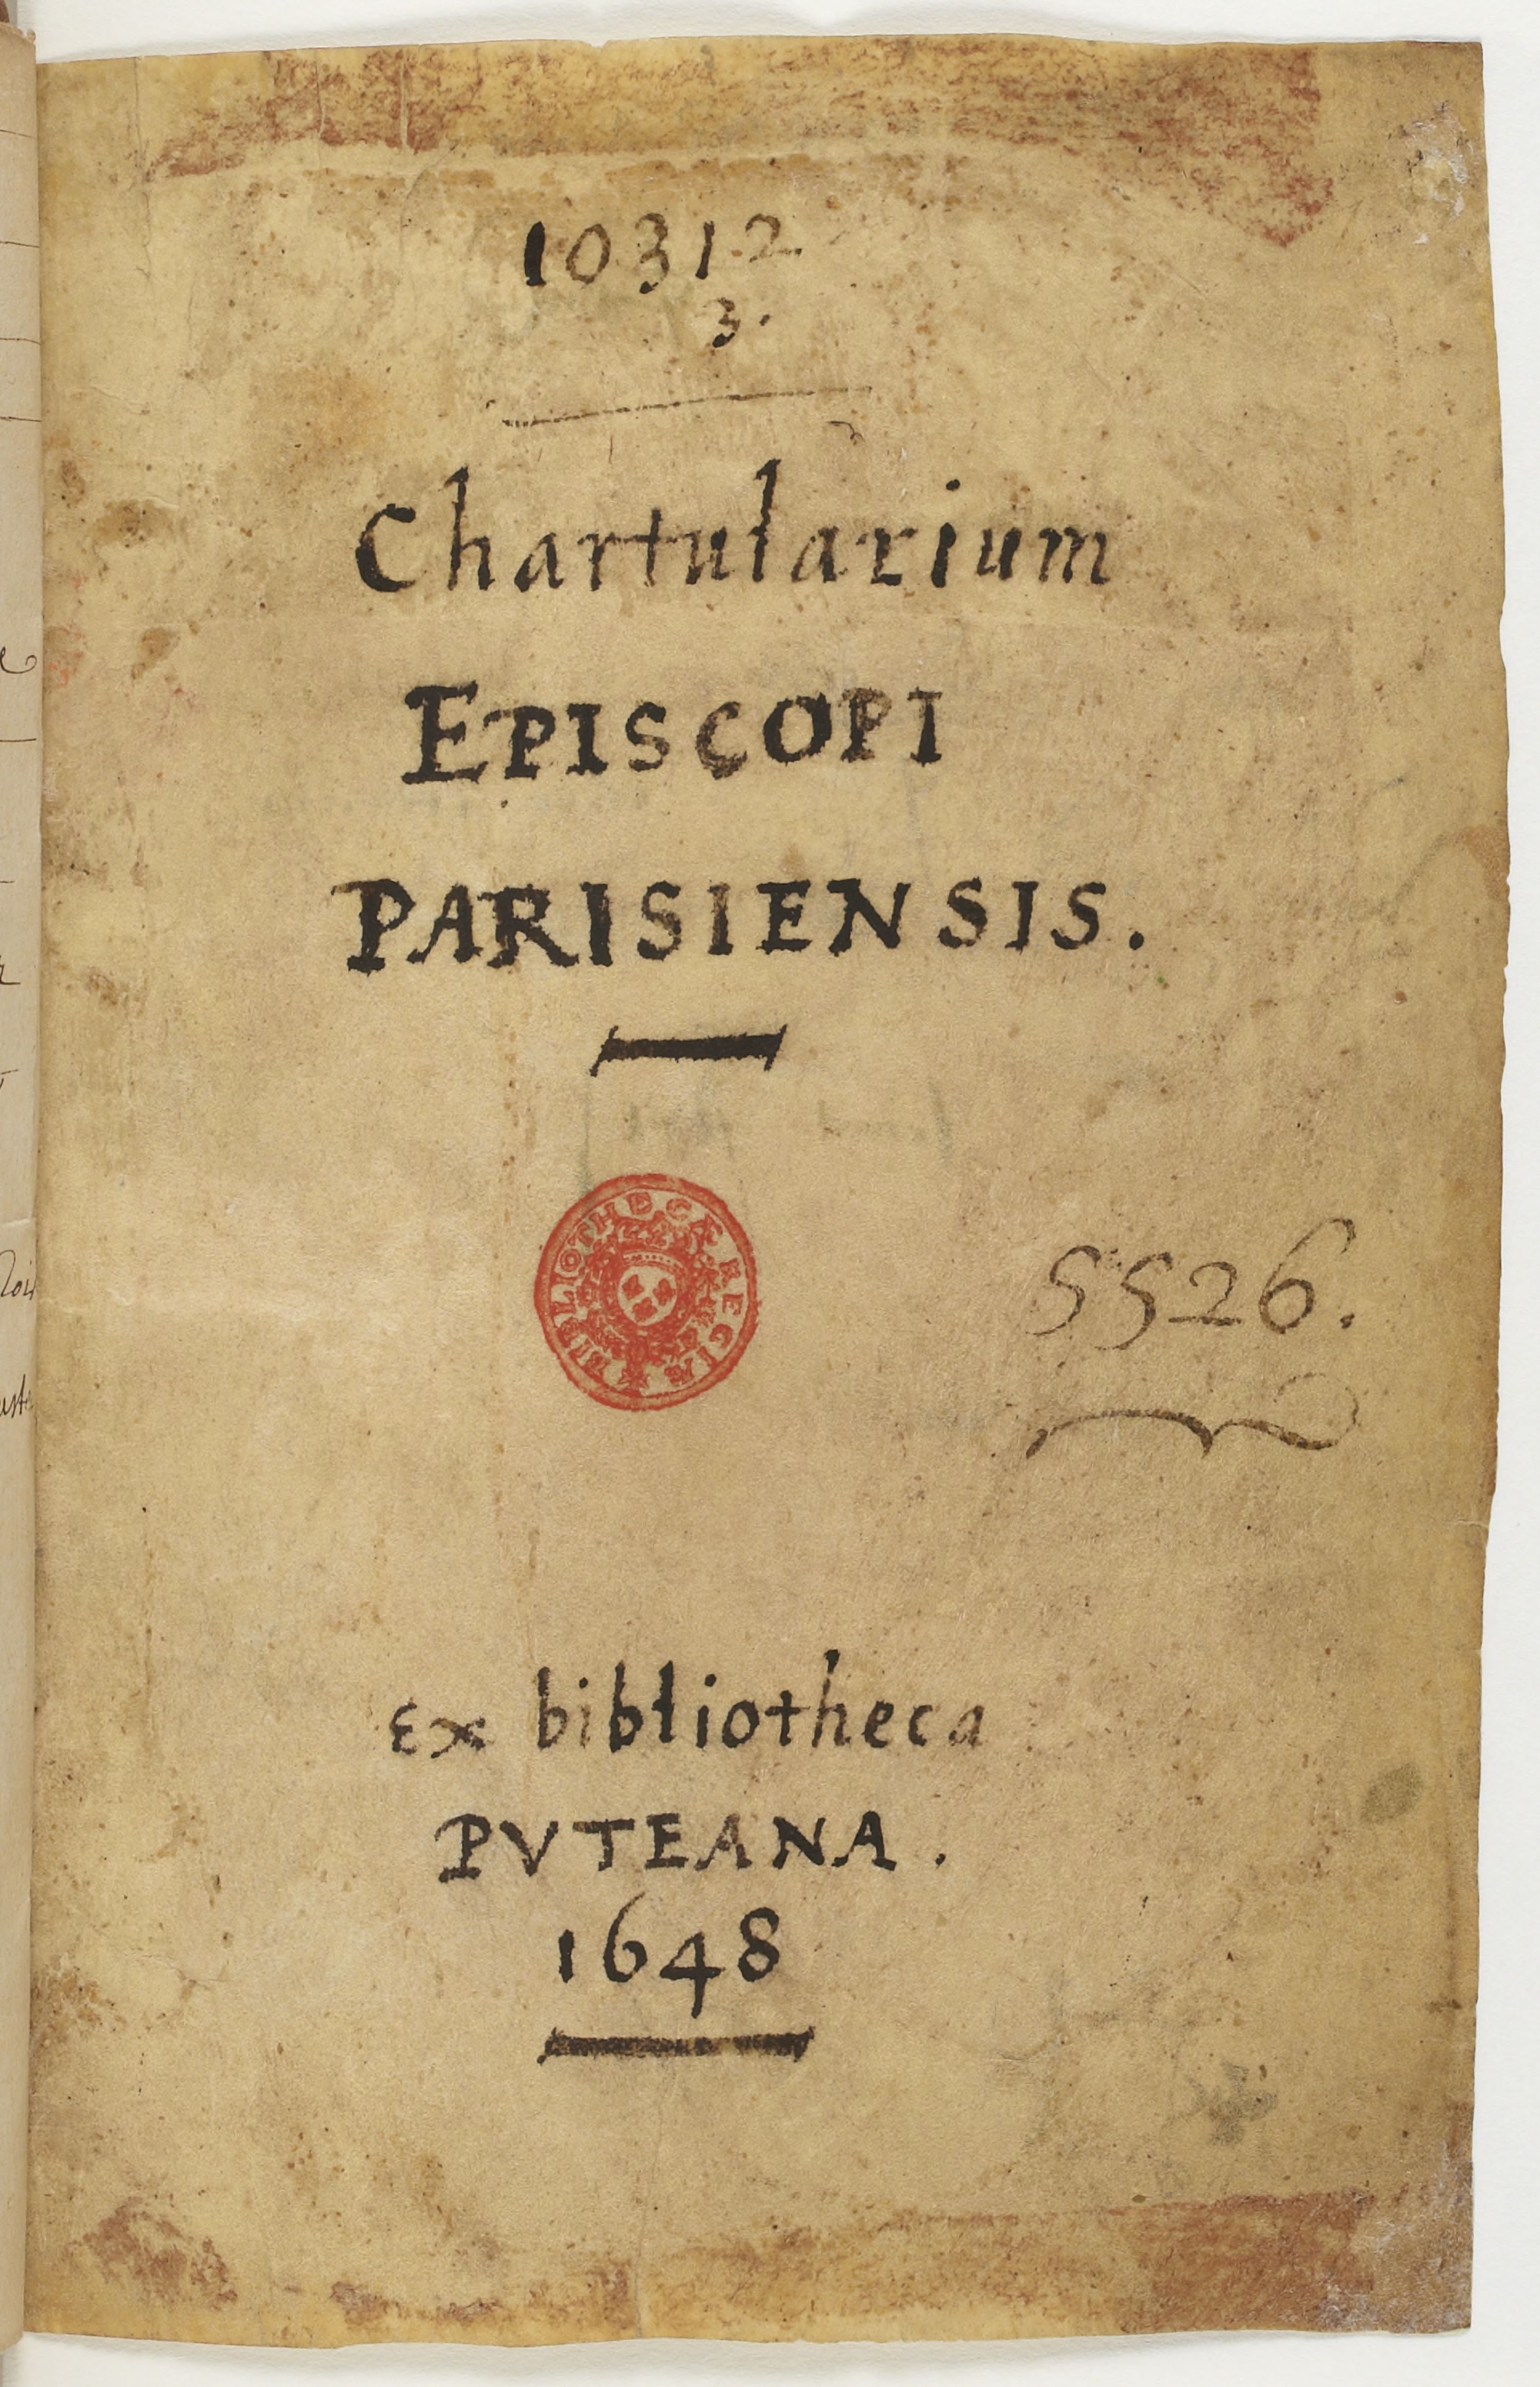 10312
3.
Chartularium
EPISCOPI
PARISIENSIS.
BIBLIOTHECÆ REGIÆ
5526.
Ex bibliotheca
PVTEANA.
1648